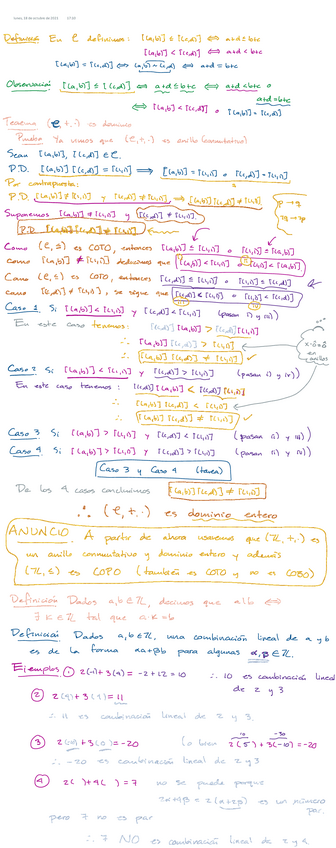 lunes, 24 de octubre de 2022 17:01
Definición En ℭ definimos: [(a,b)] ≤ [(c,d)] ⟺ a+d ≤ b+c
[(a,b)] < [(c,d)] ⟺ a+d < b+c
[(a,b)] = [(c,d)] ⟺ (a,b) ~ (c,d) ⟺ a+d = b+c
Observación [(a,b)] ≤ [(c,d)] ⟺ a+d ≤ b+c ⟺ a+d < b+c o
a+d = b+c
⟺ [(a,b)] < [(c,d)] o [(a,b)] = [(c,d)]
Teorema (ℭ,+,·) es dominio
Prueba Ya vimos que (ℭ,+,·) es anillo (conmutativo)
Sean [(a,b)], [(c,d)] ∈ ℭ.
P.D. [(a,b)] [(c,d)] = [(1,1)] ⟹ [(a,b)] = [(1,1)] o [(c,d)] = [(1,1)]
Por contrapuesta:
P.D. [(a,b)] ≠ [(1,1)] y [(c,d)] ≠ [(1,1)] ⟹ [(a,b)] [(c,d)] ≠ [(1,1)]
p → q
¬q → ¬p
Supongamos [(a,b)] ≠ [(1,1)] y [(c,d)] ≠ [(1,1)]
P.D. [(a,b)] [(c,d)] ≠ [(1,1)]
Como (ℭ,≤) es COTO, entonces [(a,b)] ≤ [(1,1)] o [(1,1)] ≤ [(a,b)]
Como [(a,b)] ≠ [(1,1)] deducimos que [(a,b)] < [(1,1)] o [(1,1)] < [(a,b)]
Como (ℭ,≤) es COTO, entonces [(c,d)] ≤ [(1,1)] o [(1,1)] ≤ [(c,d)]
Como [(c,d)] ≠ [(1,1)], se sigue que [(c,d)] < [(1,1)] o [(1,1)] < [(c,d)]
Caso 1 Si [(a,b)] < [(1,1)] y [(c,d)] < [(1,1)] (pasan i) y iii))
En este caso tenemos: [(c,d)] [(a,b)] > [(c,d)] [(1,1)]
∴ [(a,b)] [(c,d)] > [(1,1)]
∴ [(a,b)] [(c,d)] ≠ [(1,1)] ✓
x·0=0
en
anillos
Caso 2 Si [(a,b)] < [(1,1)] y [(c,d)] > [(1,1)] (pasan i) y iv))
En este caso tenemos: [(c,d)] [(a,b)] < [(c,d)] [(1,1)]
∴ [(a,b)] [(c,d)] < [(1,1)]
∴ [(a,b)] [(c,d)] ≠ [(1,1)] ✓
Caso 3 Si [(a,b)] > [(1,1)] y [(c,d)] < [(1,1)] (pasan ii) y iii))
Caso 4 Si [(a,b)] > [(1,1)] y [(c,d)] > [(1,1)] (pasan ii) y iv))
Caso 3 y Caso 4 (tarea)
De los 4 casos concluimos [(a,b)] [(c,d)] ≠ [(1,1)]
∴ (ℭ,+,·) es dominio entero
ANUNCIO. A partir de ahora usaremos que (ℤ,+,·) es
un anillo conmutativo y dominio entero y además
(ℤ,≤) es COPO (también es COTO y no es COBO)
Definición Dados a,b ∈ ℤ, decimos que a|b ⟺
∃ k ∈ ℤ tal que a·k = b
Definición Dados a,b ∈ ℤ, una combinación lineal de a y b
es de la forma αa+βb para algunas α,β ∈ ℤ.
Ejemplos ① 2(-1)+3(4) = -2+12 = 10 ∴ 10 es combinación lineal
de 2 y 3
② 2(4)+3(1) = 11
∴ 11 es combinación lineal de 2 y 3.
③ 2(-10)+3(0) = -20 (o bien 2(5)+3(-10) = -20
10 -30
∴ -20 es combinación lineal de 2 y 3
④ 2( )+4( ) = 7 no se puede porque
2α+4β = 2(α+2β) es un número
par,
pero 7 no es par
∴ 7 NO es combinación lineal de 2 y 4